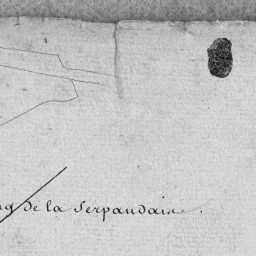 de la Serpaudais